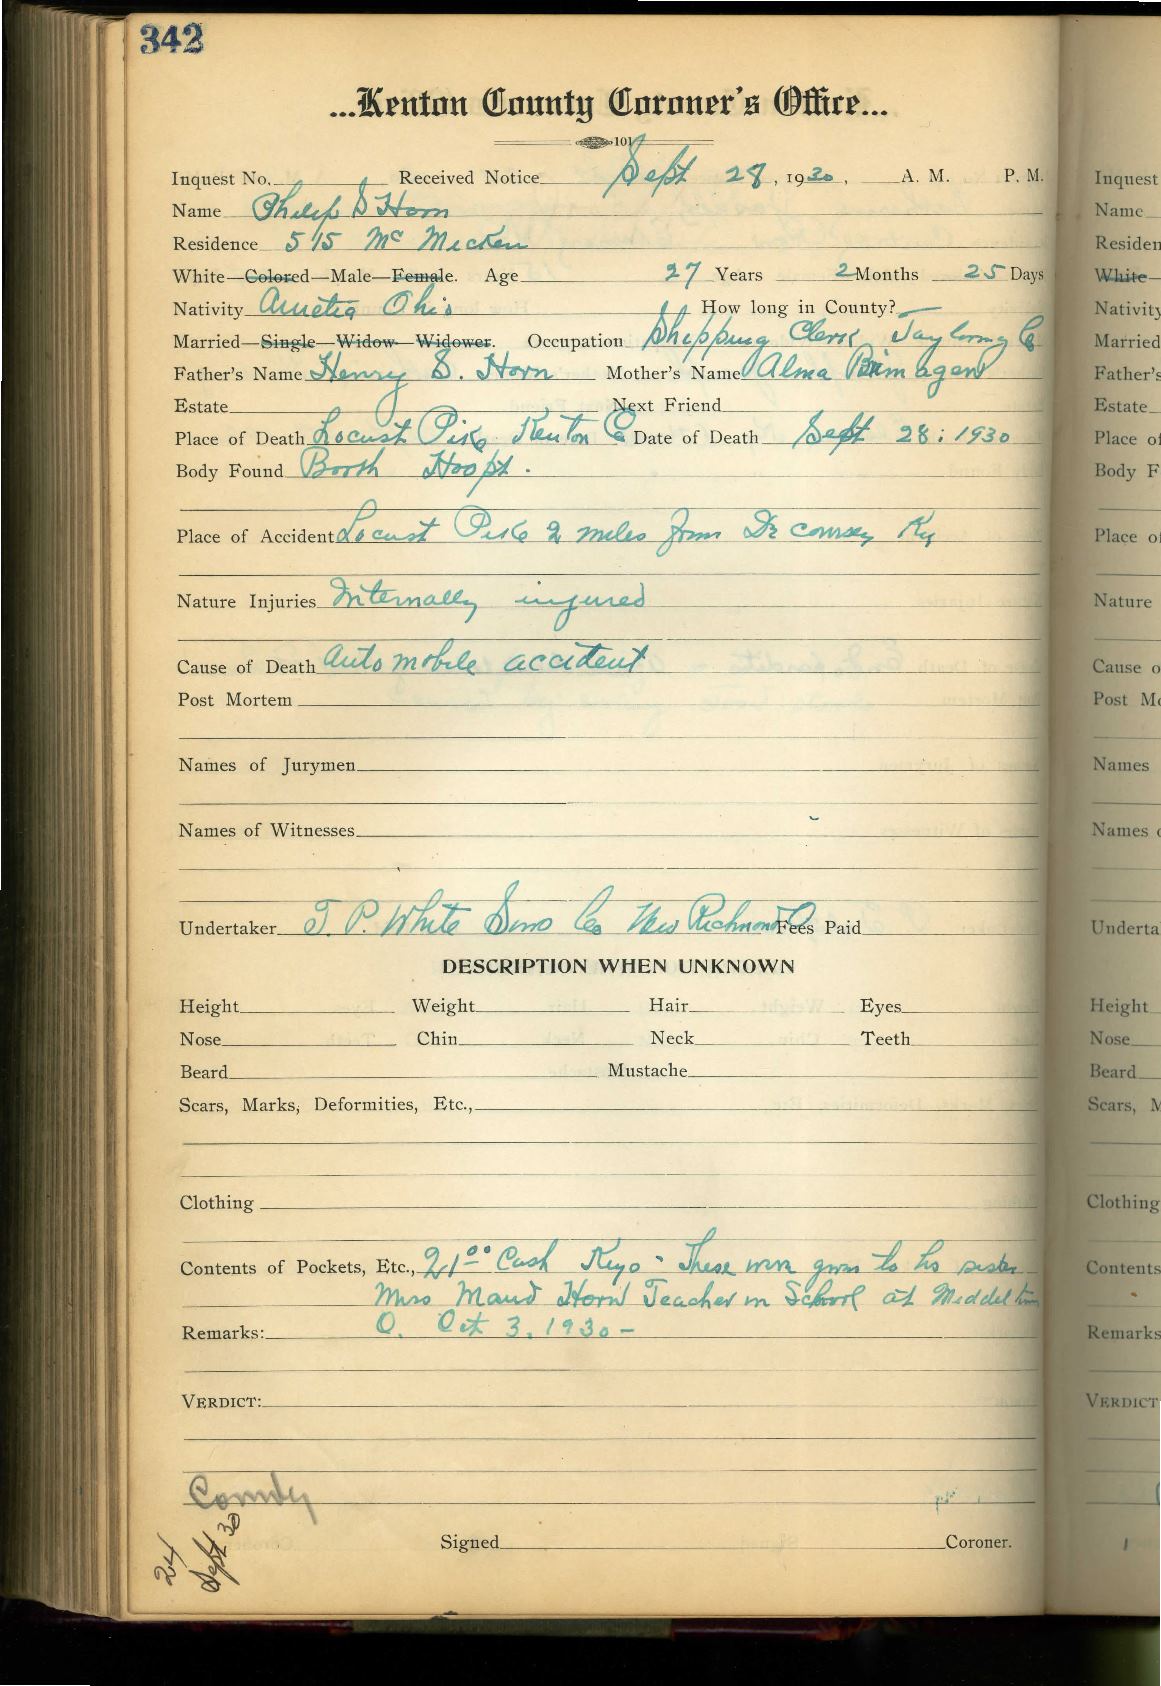 342
...Kenton County Coroner's Office...
101
Inquest No. Received Notice Sept 28, 1930, A. M. P. M.
Name Philip S Horn
Residence 515 Mc Micken
White—Colored—Male—Female. Age 27 Years 2 Months 25 Days
Nativity Amelia Ohio How long in County? —
Married—Single—Widow—Widower. Occupation Shipping Clerk Co
Father's Name Henry S. Horn Mother's Name Alma
Estate Next Friend
Place of Death Locust Pike Kenton Co Date of Death Sept 28 : 1930
Body Found Booth Hospt.
Place of Accident Locust Pike 2 miles from De coursey Ky
Nature Injuries Internally injured
Cause of Death Automobile accident
Post Mortem
Names of Jurymen
Names of Witnesses
Undertaker T. P. White Sons Co New Richmond O Fees Paid
DESCRIPTION WHEN UNKNOWN
Height Weight Hair Eyes
Nose Chin Neck Teeth
Beard Mustache
Scars, Marks, Deformities, Etc.,
Clothing
Contents of Pockets, Etc., 21 00 Cash Keys - These were given to his sister
Miss Maud Horn Teacher in School at Middeltown
Remarks: O. Oct 3, 1930 -
VERDICT:
Signed Coroner.
24
Sept 30
Inquest
Name
Residen
White
Nativity
Married
Father's
Estate
Place of
Body F
Place of
Nature
Cause o
Post Mo
Names
Names o
Underta
Height
Nose
Beard
Scars, M
Clothing
Contents
Remarks
VERDICT